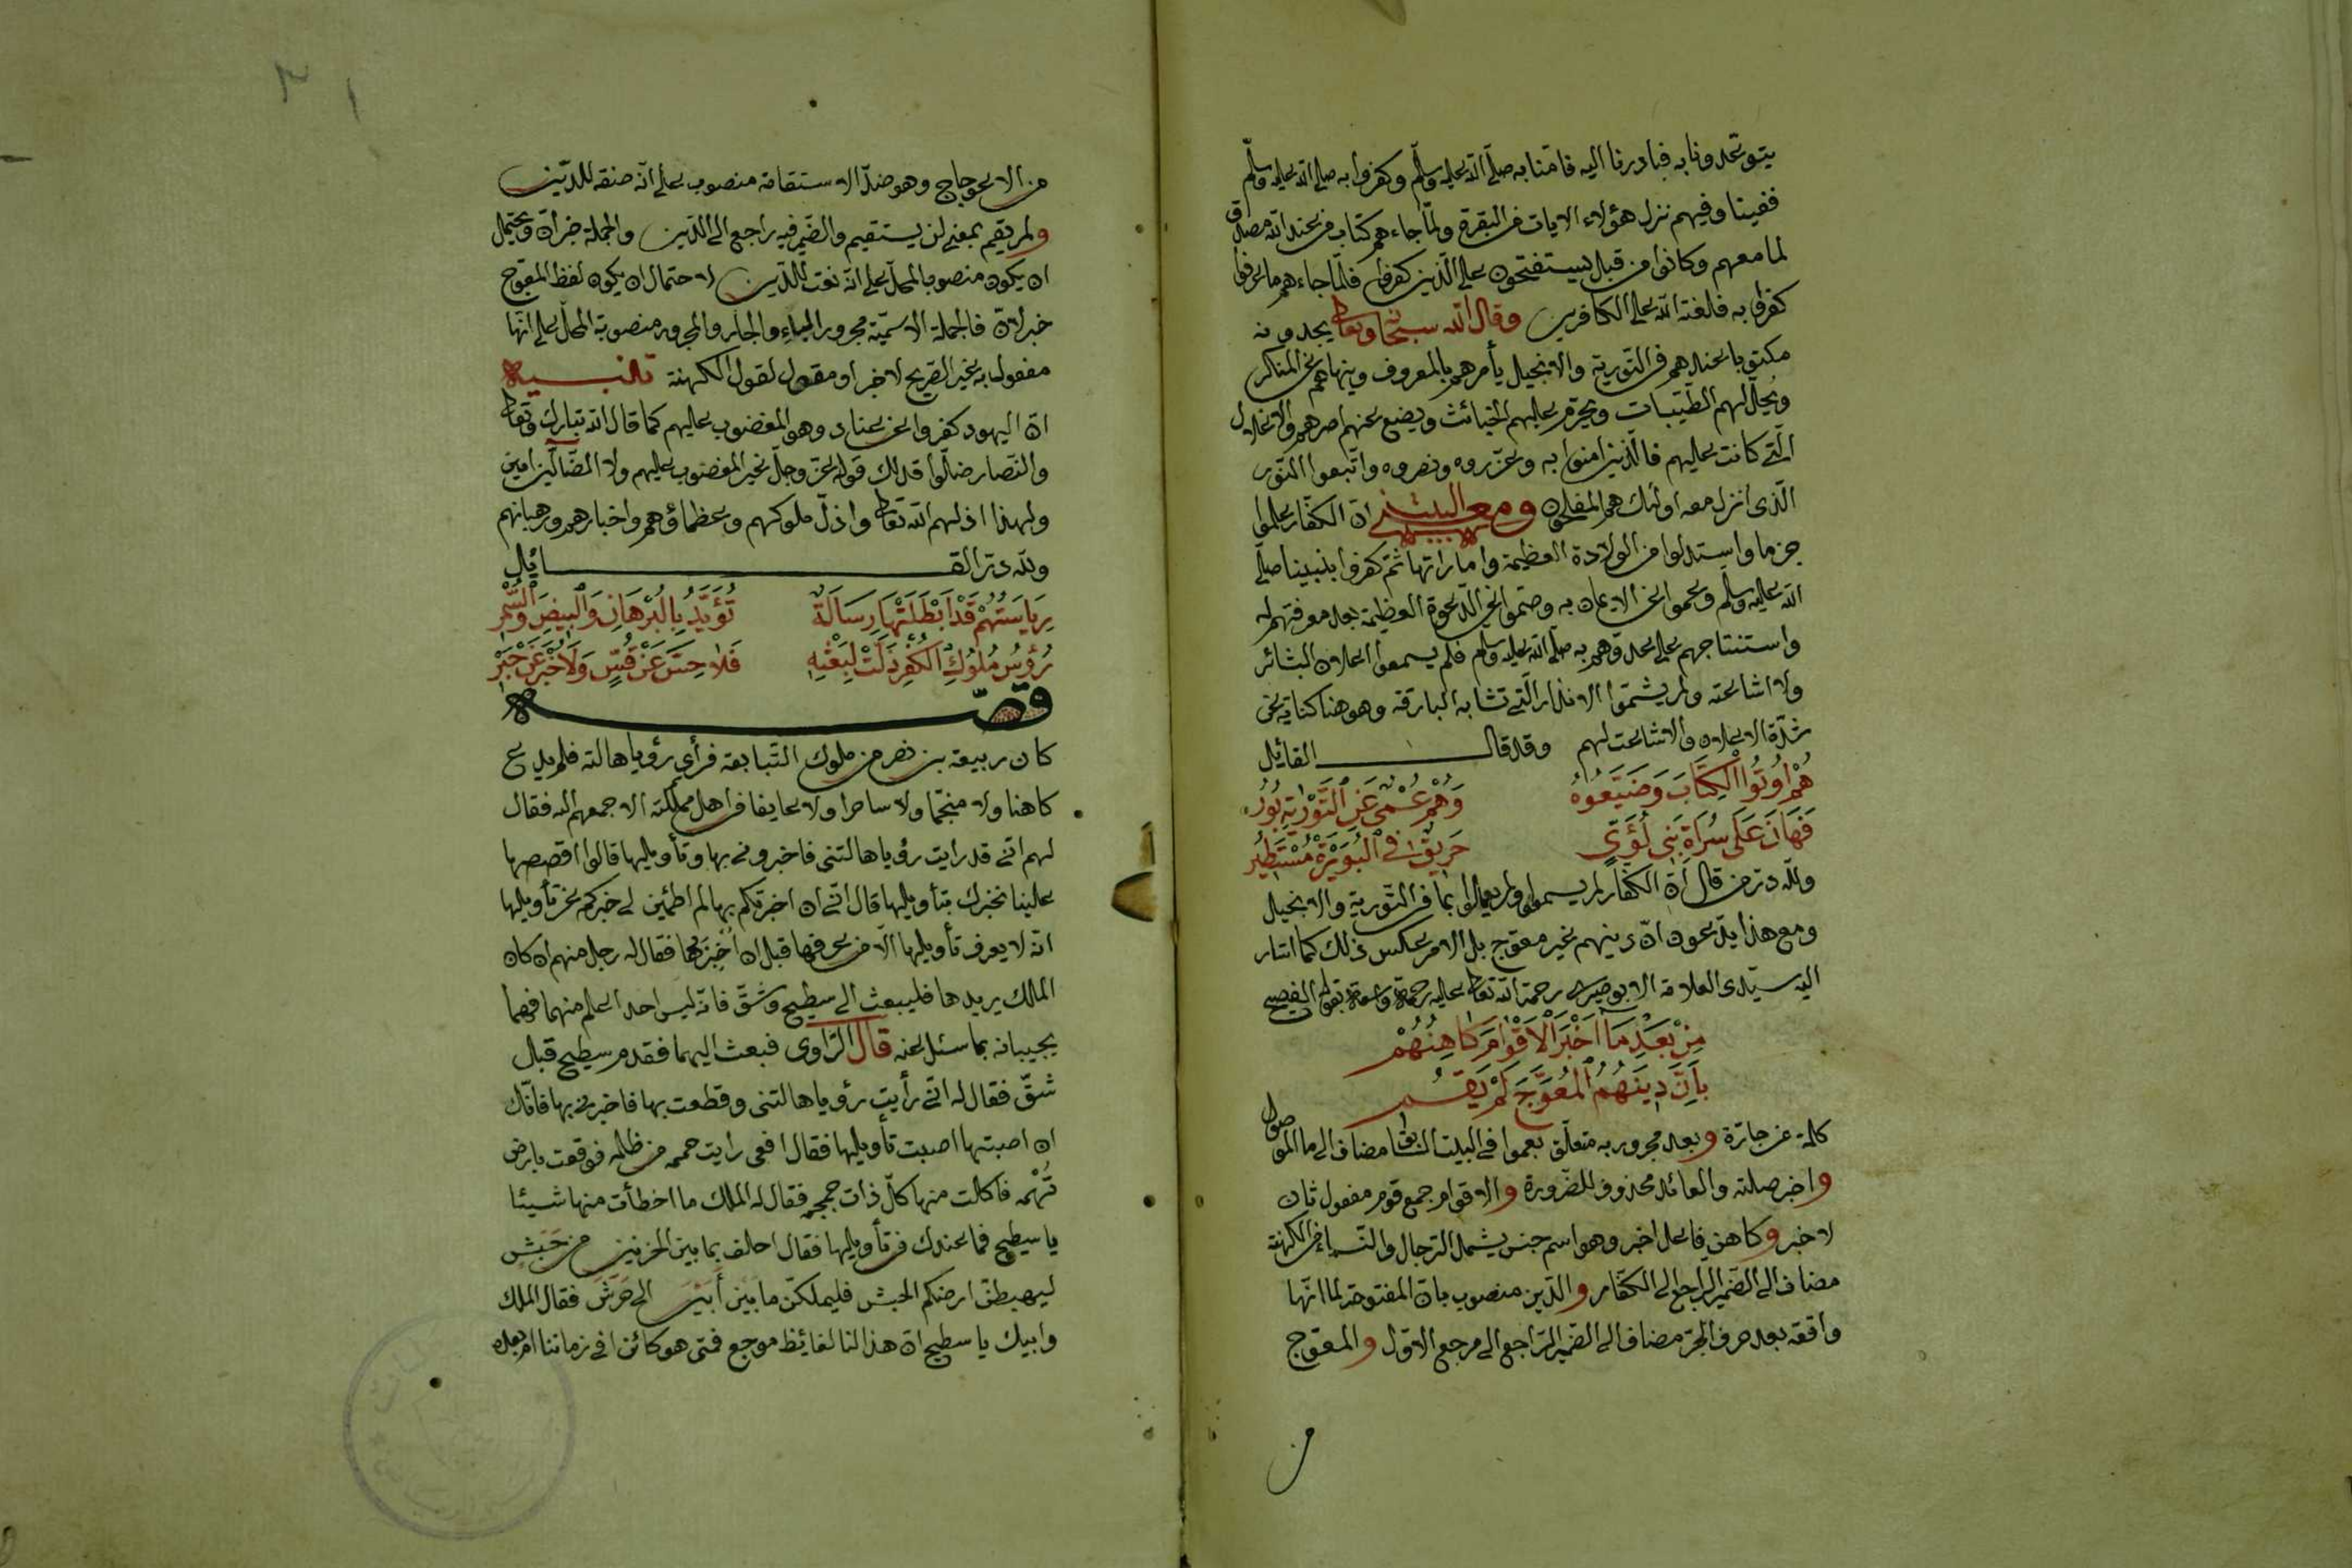 يتوعّدونا به فبادرنا اليه فامنّا به صلّى الله عليه وسلّم وكفروا به صلى الله عليه وسلّم
ففينا وفيهم نزل هؤلاء الايات في البقرة ولمّا جاءهم كتاب من عند الله مصدق
لما معهم وكانوا من قبل يستفتحون على الّذين كفروا فلمّا جاءهم ما عرفوا
كفروا به فلعنة الله على الكافرين وقال الله سبحانه وتعالى يجدونه
مكتوبا عندهم في التّورية والانجيل يأمرهم بالمعروف وينهاهم عن المنكر
ويحلّ لهم الطّيّبات ويحرّم عليهم الخبائث ويضع عنهم اصرهم والاغلال
الّتي كانت عليهم فالّذين امنوا به وعزّروه ونصروه واتّبعوا النّور
الّذى انزل معه اولئك هم المفلحون ومعنى البيتين انّ الكفّار علموا
جزما واستدلوا من الولادة العظيمة واماراتها ثمّ كفروا بنبينا صلّى
الله عليه وسلّم وعموا عن الايمان به وصمّوا عن الدّعوة العظيمة بعد معرفتهم له
واستنتاجهم على عدوّهم به صلّى الله عليه وسلم فلم يسمعوا اعلان البشائر
ولا اشاعته ولم يشمّوا الانذار الّتى تشابه البارقة وهو هنا كناية عن
شدّة الاعلان والاشاعت لهم وقد قال القائل
هُمْ اُوتُوا الْكِتَابَ وَضَيَّعُوهُ وَهُمْ عُمْيٌ عَنِ التَّوْرٰيةِ بُورُ
فَهَانَ عَلَى سُرَاةِ بَنِى لُؤَيٍّ حَرِيقٌ فِي الْبُوَيْرَةِ مُسْتَطِيرُ
ولله درّ من قال انّ الكفّار لم يسمعوا ولم يعملوا بما في التّورية والانجيل
ومع هذا يدّعون انّ دينهم غير معوّج بل الامر بعكس ذلك كما اشار
اليه سيّدى العلامة الابوصيرى رحمة الله تعالى عليه رحمة واسعة بقوله الفصيح
مِنْ بَعْدِ مَا اَخْبَرَ الْاَقْوَامَ كَاهِنُهُمْ
بِأَنَّ دِينَهُمُ الْمُعَوَّجَ لَمْ يَقُمِ
كلمة من جارّة وبعد مجرور به متعلّق بعموا في البيت السّابق مضاف الى ما الموصول
واخبر صلته والعائد محذوف للضّرورة والاقوام جمع قوم مفعول ثان
لاخبر وكاهن فاعل اخبر وهو اسم جنس يشمل الرّجال والنّساء من الكهنة
مضاف الى الضّمير الرّاجع الى الكفّار والدّين منصوب بانّ المفتوحة لما انّها
واقعة بعد حرف الجرّ مضاف الى الضّمير الرّاجع الى مرجع الاوّل والمعوّج
من
من الاعوجاج وهو ضدّ الاستقامة منصوب على انّه صفة للدّين
ولم يقم بمعنى لن يستقيم والضّمير فيه راجع الى الدّين والجملة خبر انّ ويحتمل
ان يكون منصوب المحلّ على انّه نعت للدّين لاحتمال ان يكون لفظ المعوّج
خبر لانّ فالجملة الاسميّة مجرور بالباء والجار والمجرور منصوبة المحلّ على انّها
مفعول به غير الصّريح لاخبر او مقول لقول الكهنة تنبيه
انّ اليهود كفروا عن عناد وهو المغضوب عليهم كما قال الله تبارك وتعالى
والنّصار ضلّوا فذلك قوله عزّ وجلّ غير المغضوب عليهم ولا الضّآلّين امين
ولهذا اذلهم الله تعالى واذلّ ملوكهم وعظماؤهم واخبارهم ورهبانهم
ولله درّ القائل
رِيَاسَتُهُمْ قَدْ اَبْطَلَتْهَا رِسَالَةٌ تُؤَيَّدُ بِالْبُرْهَانِ وَالْبِيضِ وَالسُّمْرِ
رُؤُسُ مُلُوكِ الْكُفْرِ ذَلَّتْ لِبَعْثِهِ فَلَا حِسَّ عَنْ قُسٍّ وَلَا خُبْرَ عَنْ حَبْرٍ
قصّه
كان ربيعة بن نصر من ملوك التّبابعة فرأى رؤيا هالته فلم يدع
كاهنا ولا منجّما ولا ساحرا ولا عايفا من اهل مملكته الا جمعهم اليه فقال
لهم انّى قد رايت رؤيا هالتنى فاخبرونى بها وتأويلها قالوا اقصصها
علينا نخبرك بتأويلها قال انّى ان اخبرتكم بها لم اطمئن لى خبركم عن تأويلها
انّه لا يعرف تأويلها الّا من عرفها قبل ان اُخْبِرَ بها فقال له رجل منهم ان كان
الملك يريد هذا فليبعث الى سطيح وشقّ فانّه ليس احد اعلم منهما فهما
يجيبانه بما سئل عنه قال الرّاوى فبعث اليهما فقدم سطيح قبل
شقّ فقال له انّى رأيت رؤيا هالتنى وقطعت بها فاخبرنى بها فانّك
ان اصبتها اصبت تأويلها فقال افعى رايت حممه من ظلمه فوقعت بارض
تُهْمه فاكلت منها كلّ ذات جمجمه فقال له الملك ما اخطأت منها شيئا
يا سطيح فما عندك من تأويلها فقال احلف بما بين الحرّتين من حَنَشٍ
ليهبطنّ ارضكم الحبش فليملكنّ ما بين أَبْيَنَ الى جَرَشَ فقال الملك
وابيك يا سطيح انّ هذا لنا لغائظ موجع فمتى هو كائن افى زماننا ام بعده